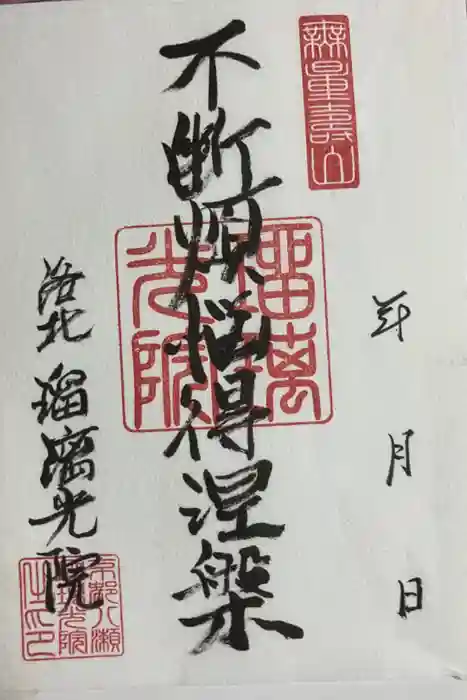 無量壽山
年 月 日
不断煩悩得涅槃
瑠璃光院
洛北 瑠璃光院
京都八瀬
瑠璃光院
之印